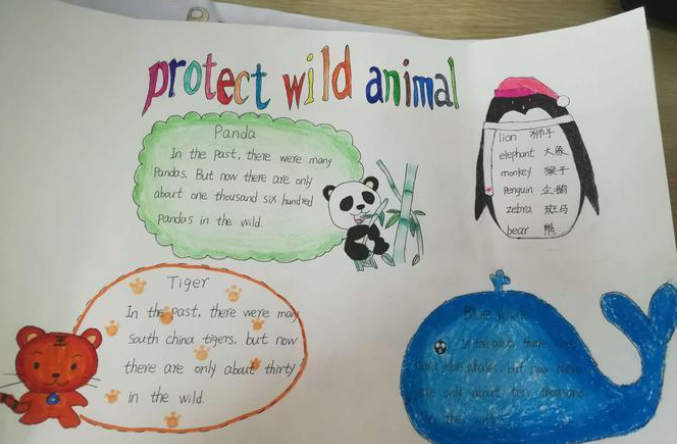 protect wild animal
Panda
In the past, there were many
Pandas. But now there are only
about one thousand six hundred
Pandas in the wild.
lion 狮子
elephant 大象
monkey 猴子
Penguin 企鹅
zebra 斑马
bear 熊
Tiger
In the past, there were many
South china tigers. but now
there are only about thirty
in the wild.
Blue whale
In the past, there
blue whales. But now there
are only about ten thousand
in the